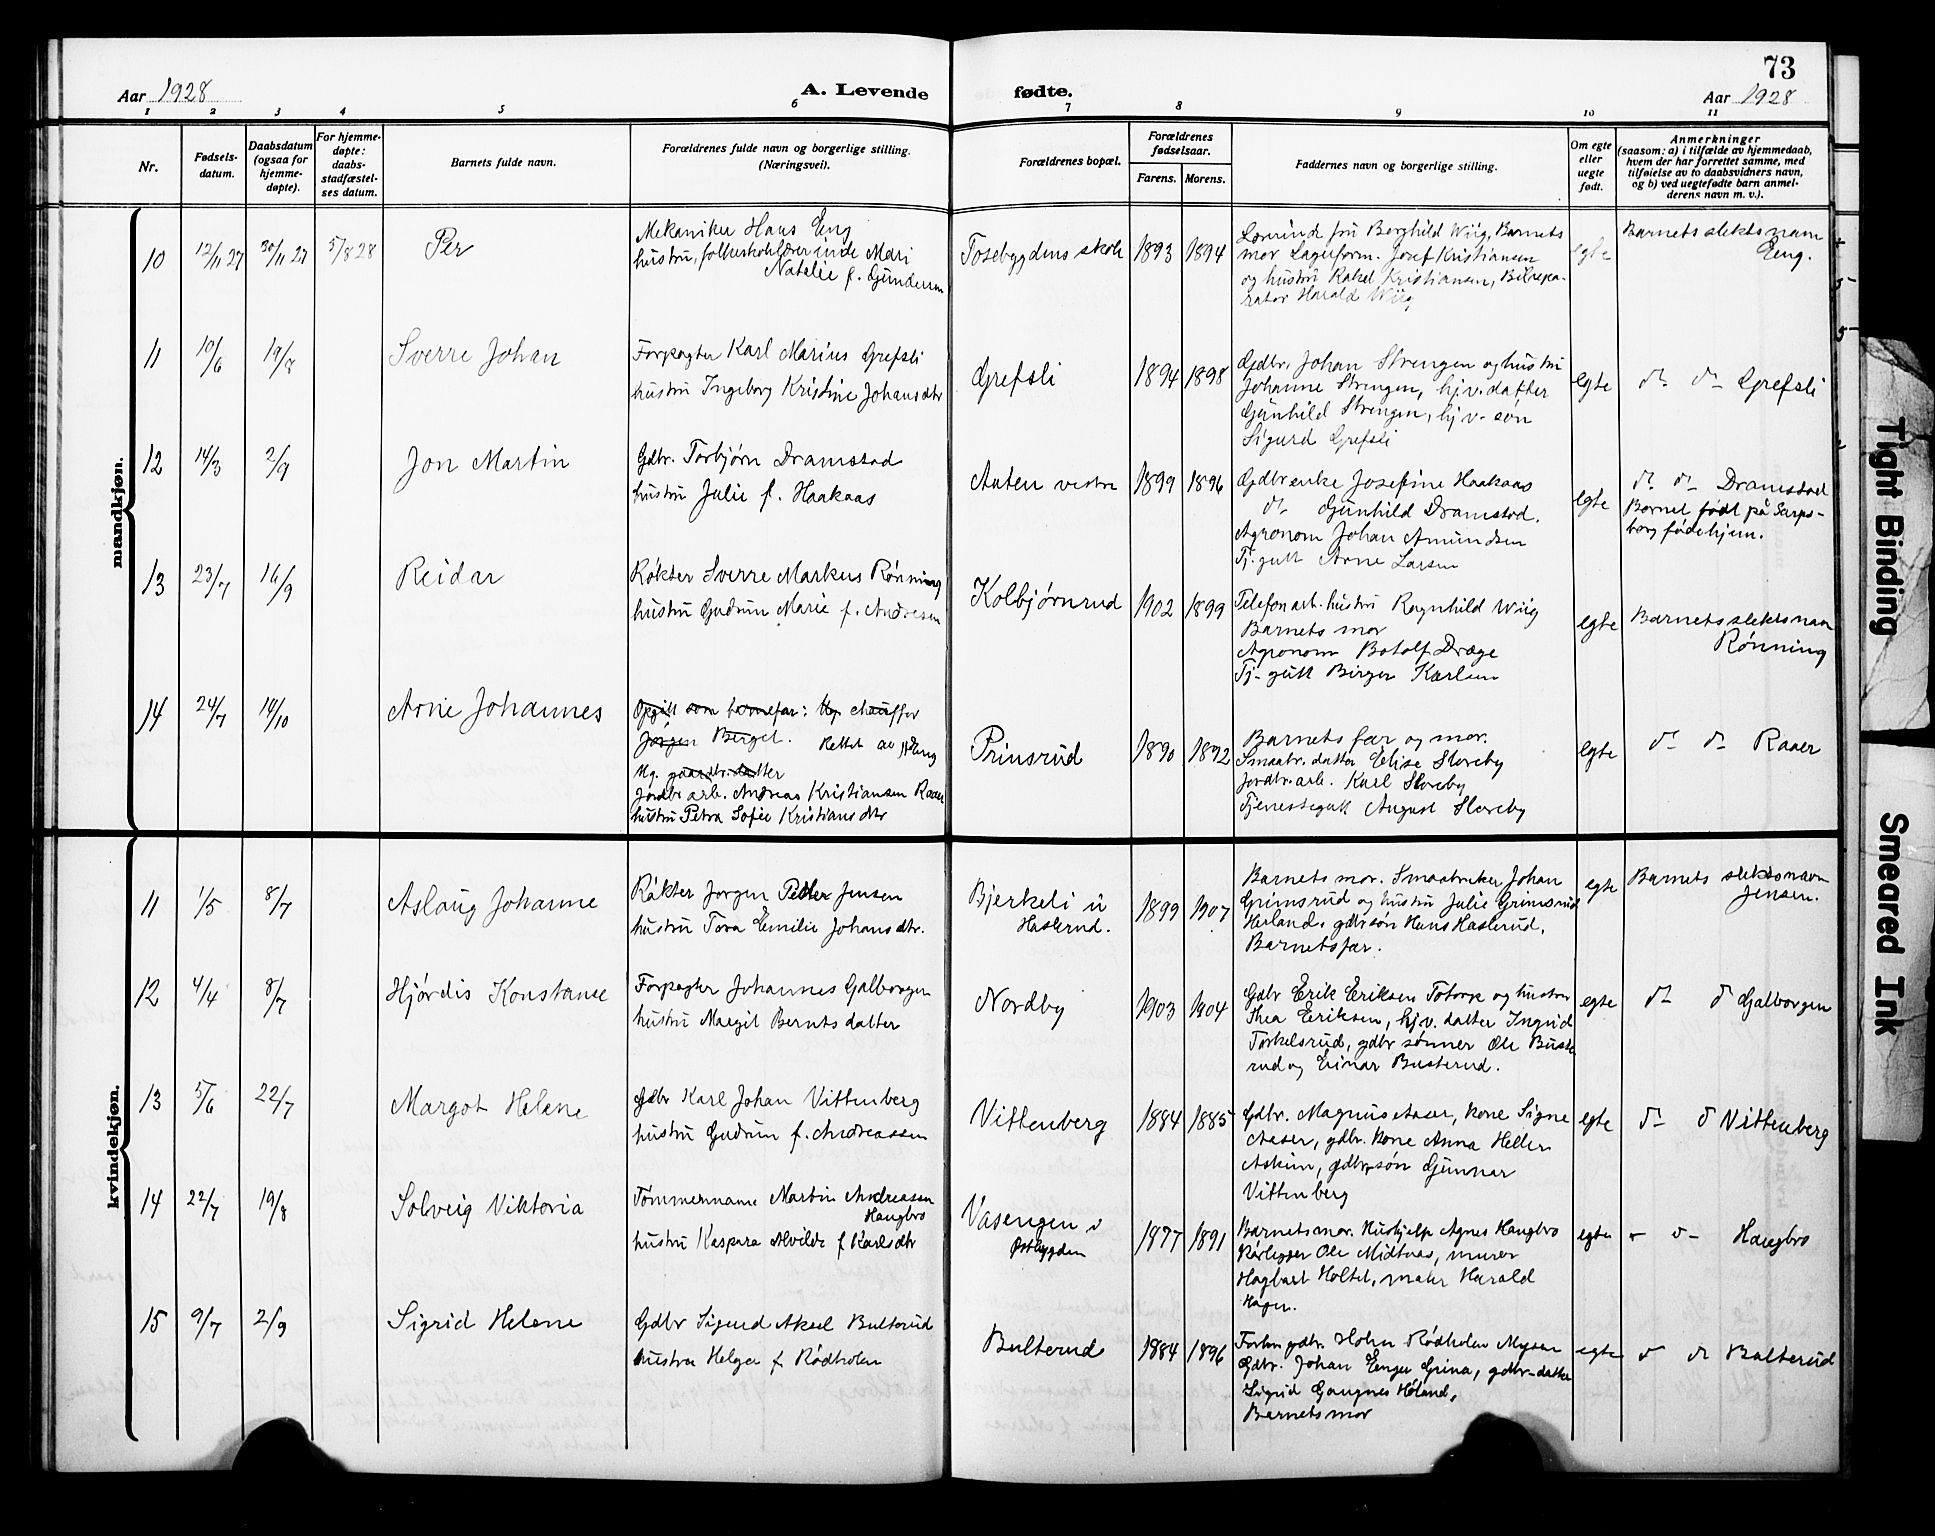 73
Aar 1928
A. Levende
fødte.
Aar 1928
1 2 3 4 5 6 7 8 9 10 11
Nr.
Fødsels-
datum.
Daabsdatum
(ogsaa for
hjemme-
døpte).
For hjemme-
døpte:
daabs-
stadfæstel-
ses datum.
Barnets fulde navn.
Forældrenes fulde navn og borgerlige stilling.
(Næringsvei).
Forældrenes bopæl.
Forældrenes
fødselsaar.
Farens. Morens.
Faddernes navn og borgerlige stilling.
Om egte
eller
uegte
født.
Anmerkninger
(saasom: a) i tilfælde av hjemmedaab,
hvem der har forrettet samme, med
tilføielse av to daabsvidners navn,
og b) ved uegtefødte barn anmel-
derens navn m. v.).
mandkjøn.
10 12/11 27 30/11 27 5/8 28 Per
Mekaniker Hans Eng
hustru, folkeskolelærerinde Mari
Natalie f. Gundersen
Tosebygdens skole 1893 1894
Lærerinde fru Borghild Wiig, Barnets
mor Lagerform. Josef Kristiansen
og hustru Rakel Kristiansen, Bilrepa-
ratør Harald Wiig
egte
Barnets slektsnavn
Eng.
11 10/6 19/8 Sverre Johan
Forpagter Karl Marius Grefsli
hustru Ingeborg Kristine Johansdtr
Grefsli 1894 1898
Gdbr. Johan Strengen og hustru
Johanne Strengen, hj.v. datter
Gunhild Strengen, hj.v. søn
Sigurd Grefsli
egte
d- d- Grefsli
12 14/3 2/9 Jon Martin
Gdbr. Torbjørn Dramstad
hustru Julie f. Haakaas
Auten vestre 1899 1896
Gdbrenke Josefine Haakaas
d- Gunhild Dramstad.
Agronom Johan Amundsen
Tj. gutt Arne Larsen
egte
d- d- Dramstad
Barnet født på Sarps-
borg fødehjem.
13 23/7 16/9 Reidar
Røkter Sverre Markus Rønning
hustru Gudrun Marie f. Andresen
Kolbjørnrud 1902 1899
Telefonarb. hustru Ragnhild Wiig
Barnets mor
Agronom Botolf Dræge
Tj. gutt Birger Karlsen
egte
Barnets slektsnavn
Rønning
14 24/7 14/10 Arne Johannes
Opgitt som barnefar: Ug. chauffør
Jørgen Berget. Rettet av
Ug. gaardbr. datter
Jordbr arb. Andreas Kristiansen Raaer
hustru Petra Sofie Kristiansdtr
Prinsrud 1890 1892
Barnets far og mor.
Smaabr. datter Elise Sloreby
Jordbr. arb. Karl Sloreby
Tjenestegutt August Sloreby
egte
d- d- Raaer
kvindekjøn.
11 1/5 8/7 Aslaug Johanne
Røkter Jørgen Petter Jensen
hustru Tora Emilie Johansdtr.
Bjerkeli u
Haslerud. 1899 1907
Barnets mor. Smaabruker Johan
Grimsrud og hustru Julie Grimsrud
gdbrsøn Hans Haslerud,
Barnets far.
egte
Barnets slektsnavn
Jensen.
12 4/4 8/7 Hjørdis Konstanse
Forpagter Johannes Galborgen
hustru Margit Berntsdatter
Nordby 1903 1904
Gdbr Erik Eriksen Totorp og hustru
Thea Eriksen, hj.v. datter Ingrid
Torkelsrud, gdbr sønner Ole Buste-
rud og Einar Busterud.
egte
d- d Galborgen
13 5/6 22/7 Margot Helene
Gdbr Karl Johan Vittenberg
hustru Gudrun f. Andreassen
Vittenberg 1884 1885
Gdbr. Magnus Aaser, kone Signe
Aaser, gdbr. kone Anna Heller
Askim, gdbr. søn Gunnar
Vittenberg
egte
d- d Vittenberg
14 22/7 19/8 Solveig Viktoria
Tømmermann Martin Andreassen
Haugbro
hustru Kaspara Alvilde f Karlsdtr
Vasengen i
Østbygden 1877 1891
Barnets mor. Hushjelp Agnes Haugbro
Rørlegger Ole Midtaas, murer
Hagbart Holtet, maler Harald
Hagen.
egte
- d- Haugbro
15 9/7 2/9 Sigrid Helene
Gdbr Sigurd Aksel Bulterud
hustru Helga f Rødholen
Bulterud 1884 1896
gdbr. Rødholen Mysen
Gdbr. Johan Enger Grina, gdbr-datter
Sigrid Gangnes Høland,
Barnets mor
egte
d d Bulterud
Tight Binding
Smeared Ink